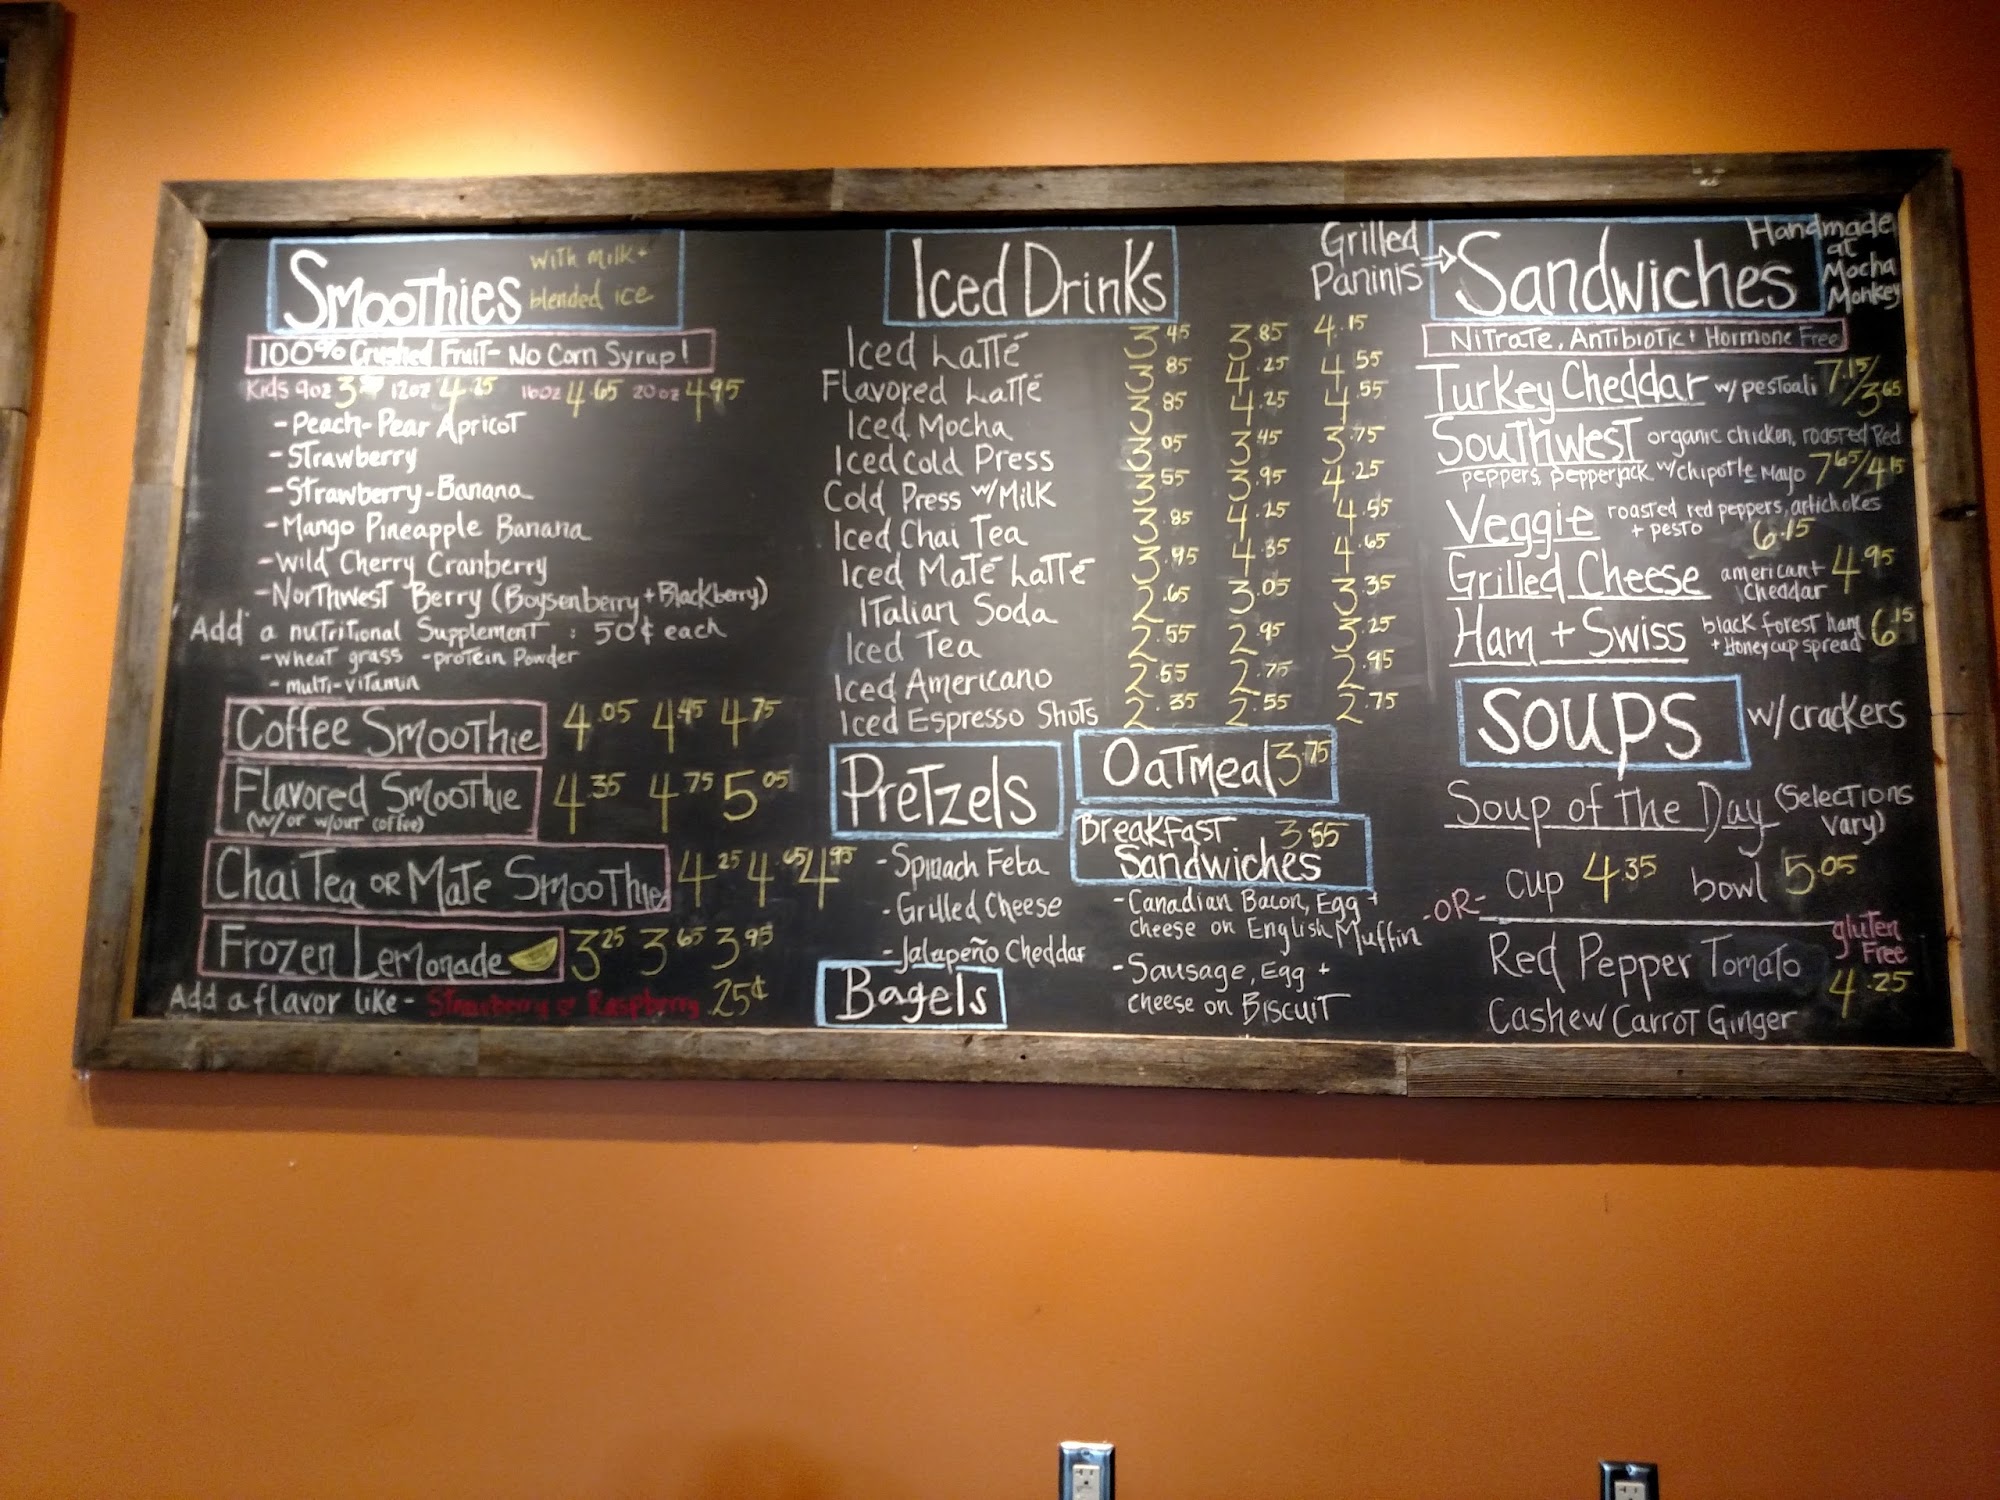 Smoothies with milk + blended ice
100% Crushed Fruit - No Corn Syrup!
Kids 9oz 3. 12oz 4.25 16oz 4.65 20oz 4.95
- Peach-Pear Apricot
- Strawberry
- Strawberry-Banana
- Mango Pineapple Banana
- Wild Cherry Cranberry
- Northwest Berry (Boysenberry + Blackberry)
Add a nutritional Supplement : 50¢ each
- wheat grass - protein Powder
- multi-vitamin
Coffee Smoothie 4.05 4.45 4.75
Flavored Smoothie 4.35 4.75 5.05
(w/or w/out coffee)
Chai Tea or Mate Smoothie 4.25 4.65 4.95
Frozen Lemonade 3.25 3.65 3.95
Add a flavor like - Strawberry or Raspberry .25¢
Iced Drinks
Iced Latté 3.45 3.85 4.15
Flavored Latté 3.85 4.25 4.55
Iced Mocha 3.85 4.25 4.55
Iced Cold Press 3.05 3.45 3.75
Cold Press w/Milk 3.55 3.95 4.25
Iced Chai Tea 3.85 4.25 4.55
Iced Maté Latté 3.95 4.35 4.65
Italian Soda 2.65 3.05 3.35
Iced Tea 2.55 2.95 3.25
Iced Americano 2.55 2.75 2.95
Iced Espresso Shots 2.35 2.55 2.75
Pretzels
- Spinach Feta
- Grilled Cheese
- Jalapeño Cheddar
Bagels
Oatmeal 3.75
Breakfast 3.55
Sandwiches
- Canadian Bacon, Egg +
cheese on English Muffin
- Sausage, Egg +
cheese on Biscuit
Grilled
Paninis
Sandwiches
Handmade
at
Mocha
Monkey
Nitrate, Antibiotic + Hormone Free
Turkey Cheddar w/pestoali 7.15/3.65
Southwest organic chicken, roasted Red
peppers, pepperjack w/chipotle Mayo 7.65/4.15
Veggie roasted red peppers, artichokes
+ pesto 6.15
Grilled Cheese american + cheddar 4.95
Ham + Swiss black forest ham + Honeycup spread 6.15
Soups w/crackers
Soup of the Day (Selections vary)
cup 4.35 bowl 5.05
-OR-
gluten Free
Red Pepper Tomato 4.25
Cashew Carrot Ginger